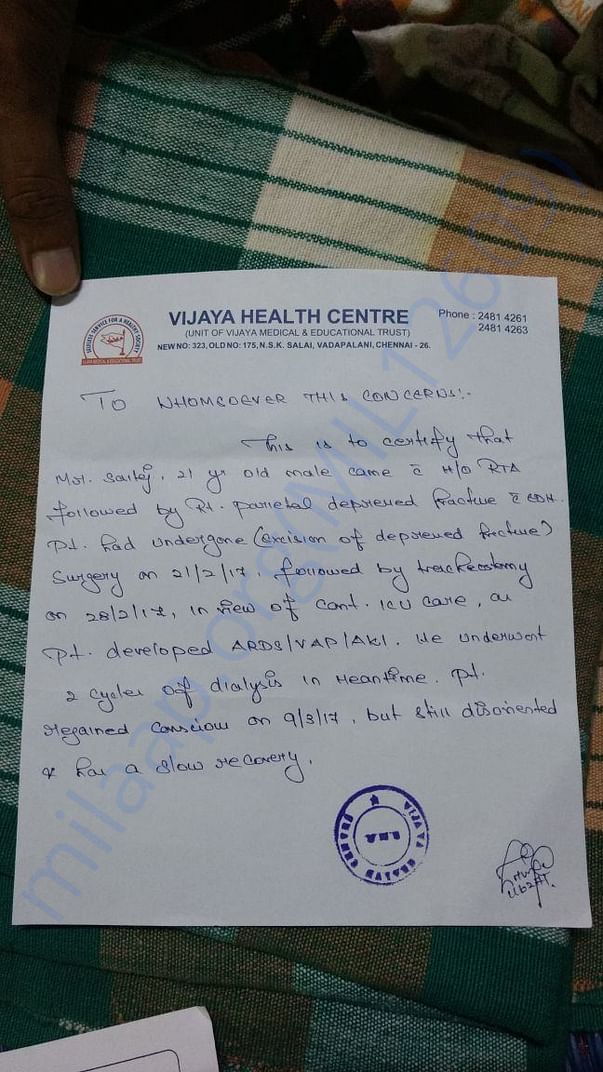 VIJAYA HEALTH CENTRE
(UNIT OF VIJAYA MEDICAL & EDUCATIONAL TRUST)
NEW NO: 323, OLD NO: 175, N.S.K. SALAI, VADAPALANI, CHENNAI - 26.
Phone : 2481 4261
2481 4263
TO WHOMSOEVER THIS CONCERNS:-
This is to certify that
Mr. , 21 yr old male came c̄ H/O RTA
followed by Rt. parietal depressed fracture c̄ EDH.
Pt. had undergone (Excision of depressed fracture)
Surgery on 21/2/17, followed by tracheostomy
on 28/2/17, in view of cont. ICU care, as
Pt. developed ARDS/VAP/AKI. He underwent
2 cycles of dialysis in meantime. Pt.
regained conscious on 9/3/17, but still disoriented
& has a slow recovery.
milaap.org(MIL12609)